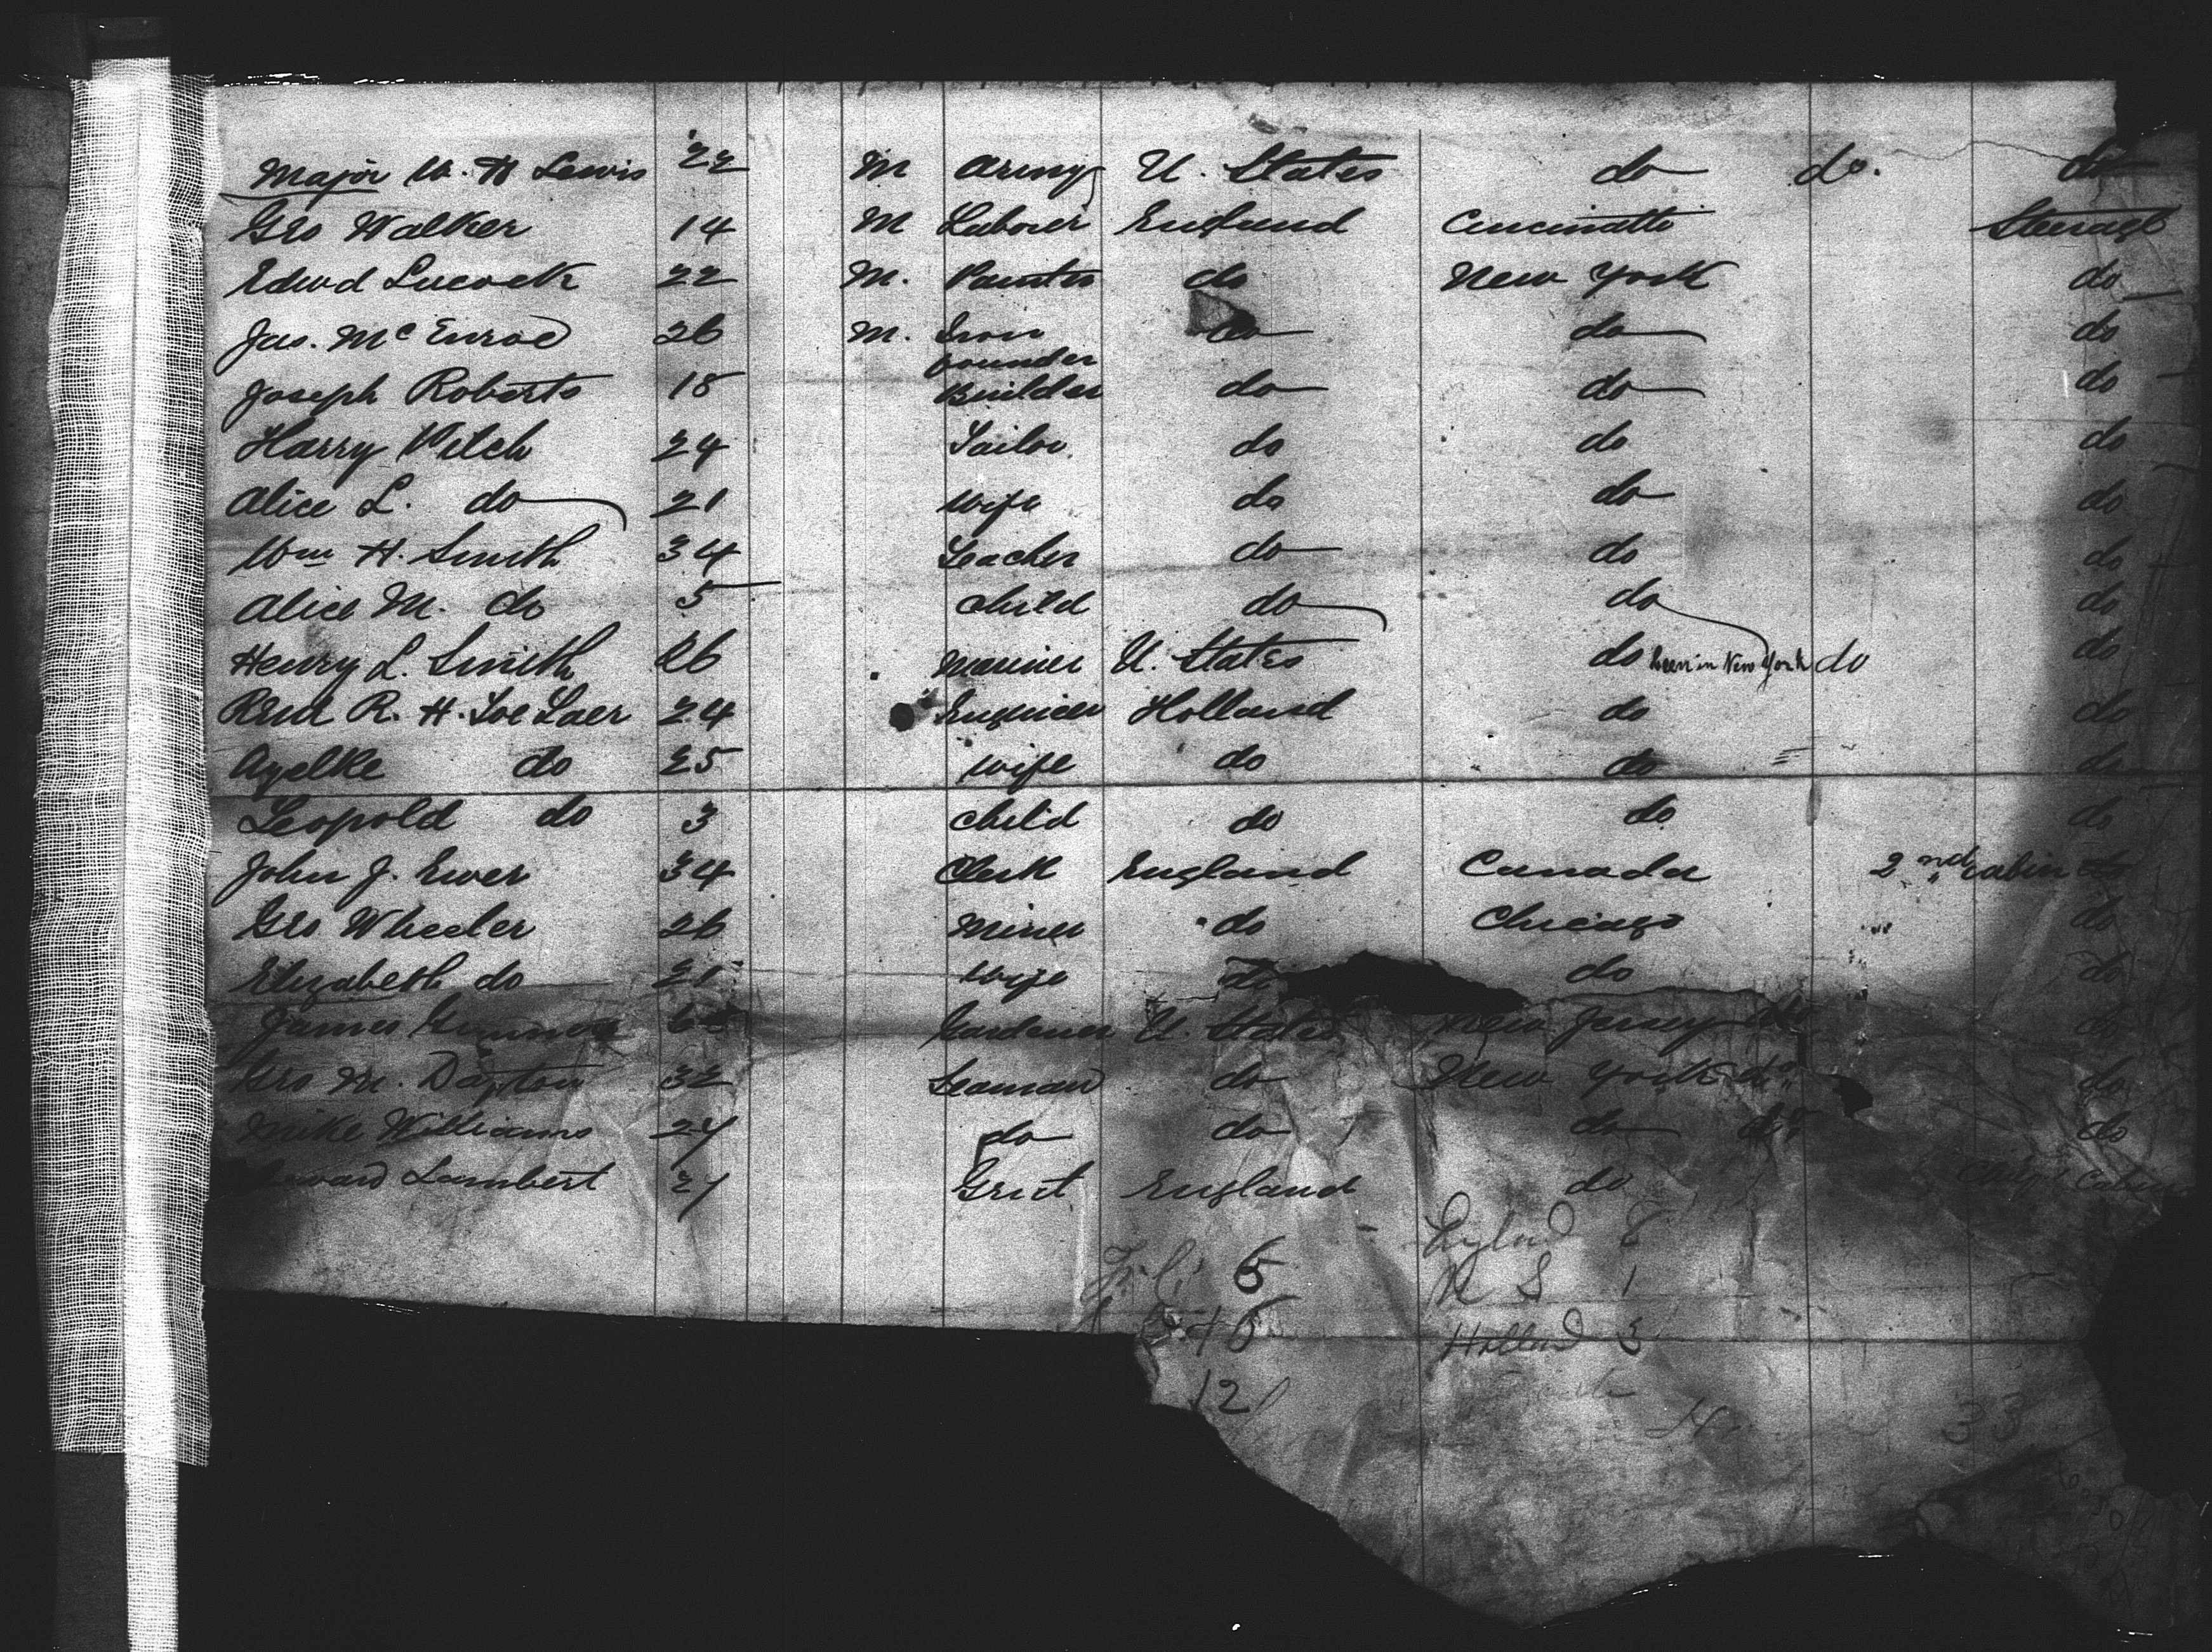 Major W. H Lewis 22 M Army U. States do do. do
Geo Walker 14 M Labourer England Cincinatti Steerage
Edwd Lucock 22 M. Painter do New York do
Jas. McEnroe 26 M. Iron founder do do do
Joseph Roberts 18 Builder do do do
Harry Pilch 24 Tailor. do do do
Alice L. do 21 Wife do do do
Wm H. Smith 34 Teacher do do do
Alice M. do 5 Child do do do
Henry L. Smith 26 Mariner U. States do born in New York do do
R. H. 24 Engineer Holland do do
do 25 Wife do do do
Leopold do 3 Child do do do
John J. Ewer 34 Clerk England Canada 2nd cabin do
Geo Wheeler 26 Miner do Chicago " do
Elizabeth do 21 Wife do do do
James Gardener U. States New Jersey do do
Geo M. Dayton 32 Seaman do New York do do
Mike Williams 24 do do do do do
Lambert 21 Gent England do Cabin
England 8
6
U S 1
+6
Holland 3
12
14
33